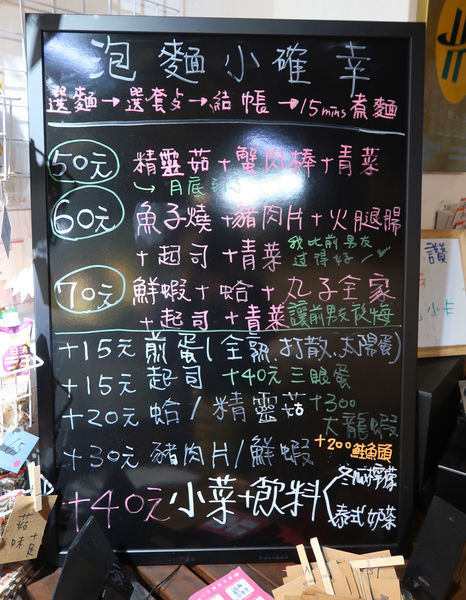 泡麵小確幸
選麵→選套餐→結帳→15mins煮麵
50元 精靈菇+蟹肉棒+青菜
→月底
60元 魚子燒+豬肉片+火腿腸
+起司+青菜 我比前男友過得好
70元 鮮蝦+蛤+丸子全家
+起司+青菜 讓前男友後悔
+15元 煎蛋(全熟,打散,太陽蛋)
+15元 起司 +40元三眼蛋
+20元 蛤/精靈菇 +300大龍蝦
+30元 豬肉片/鮮蝦 +200鮭魚頭
+40元 小菜+飲料〈冬瓜檸檬
泰式奶茶
讚
小卡